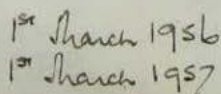 1st March 1956
1st March 1957